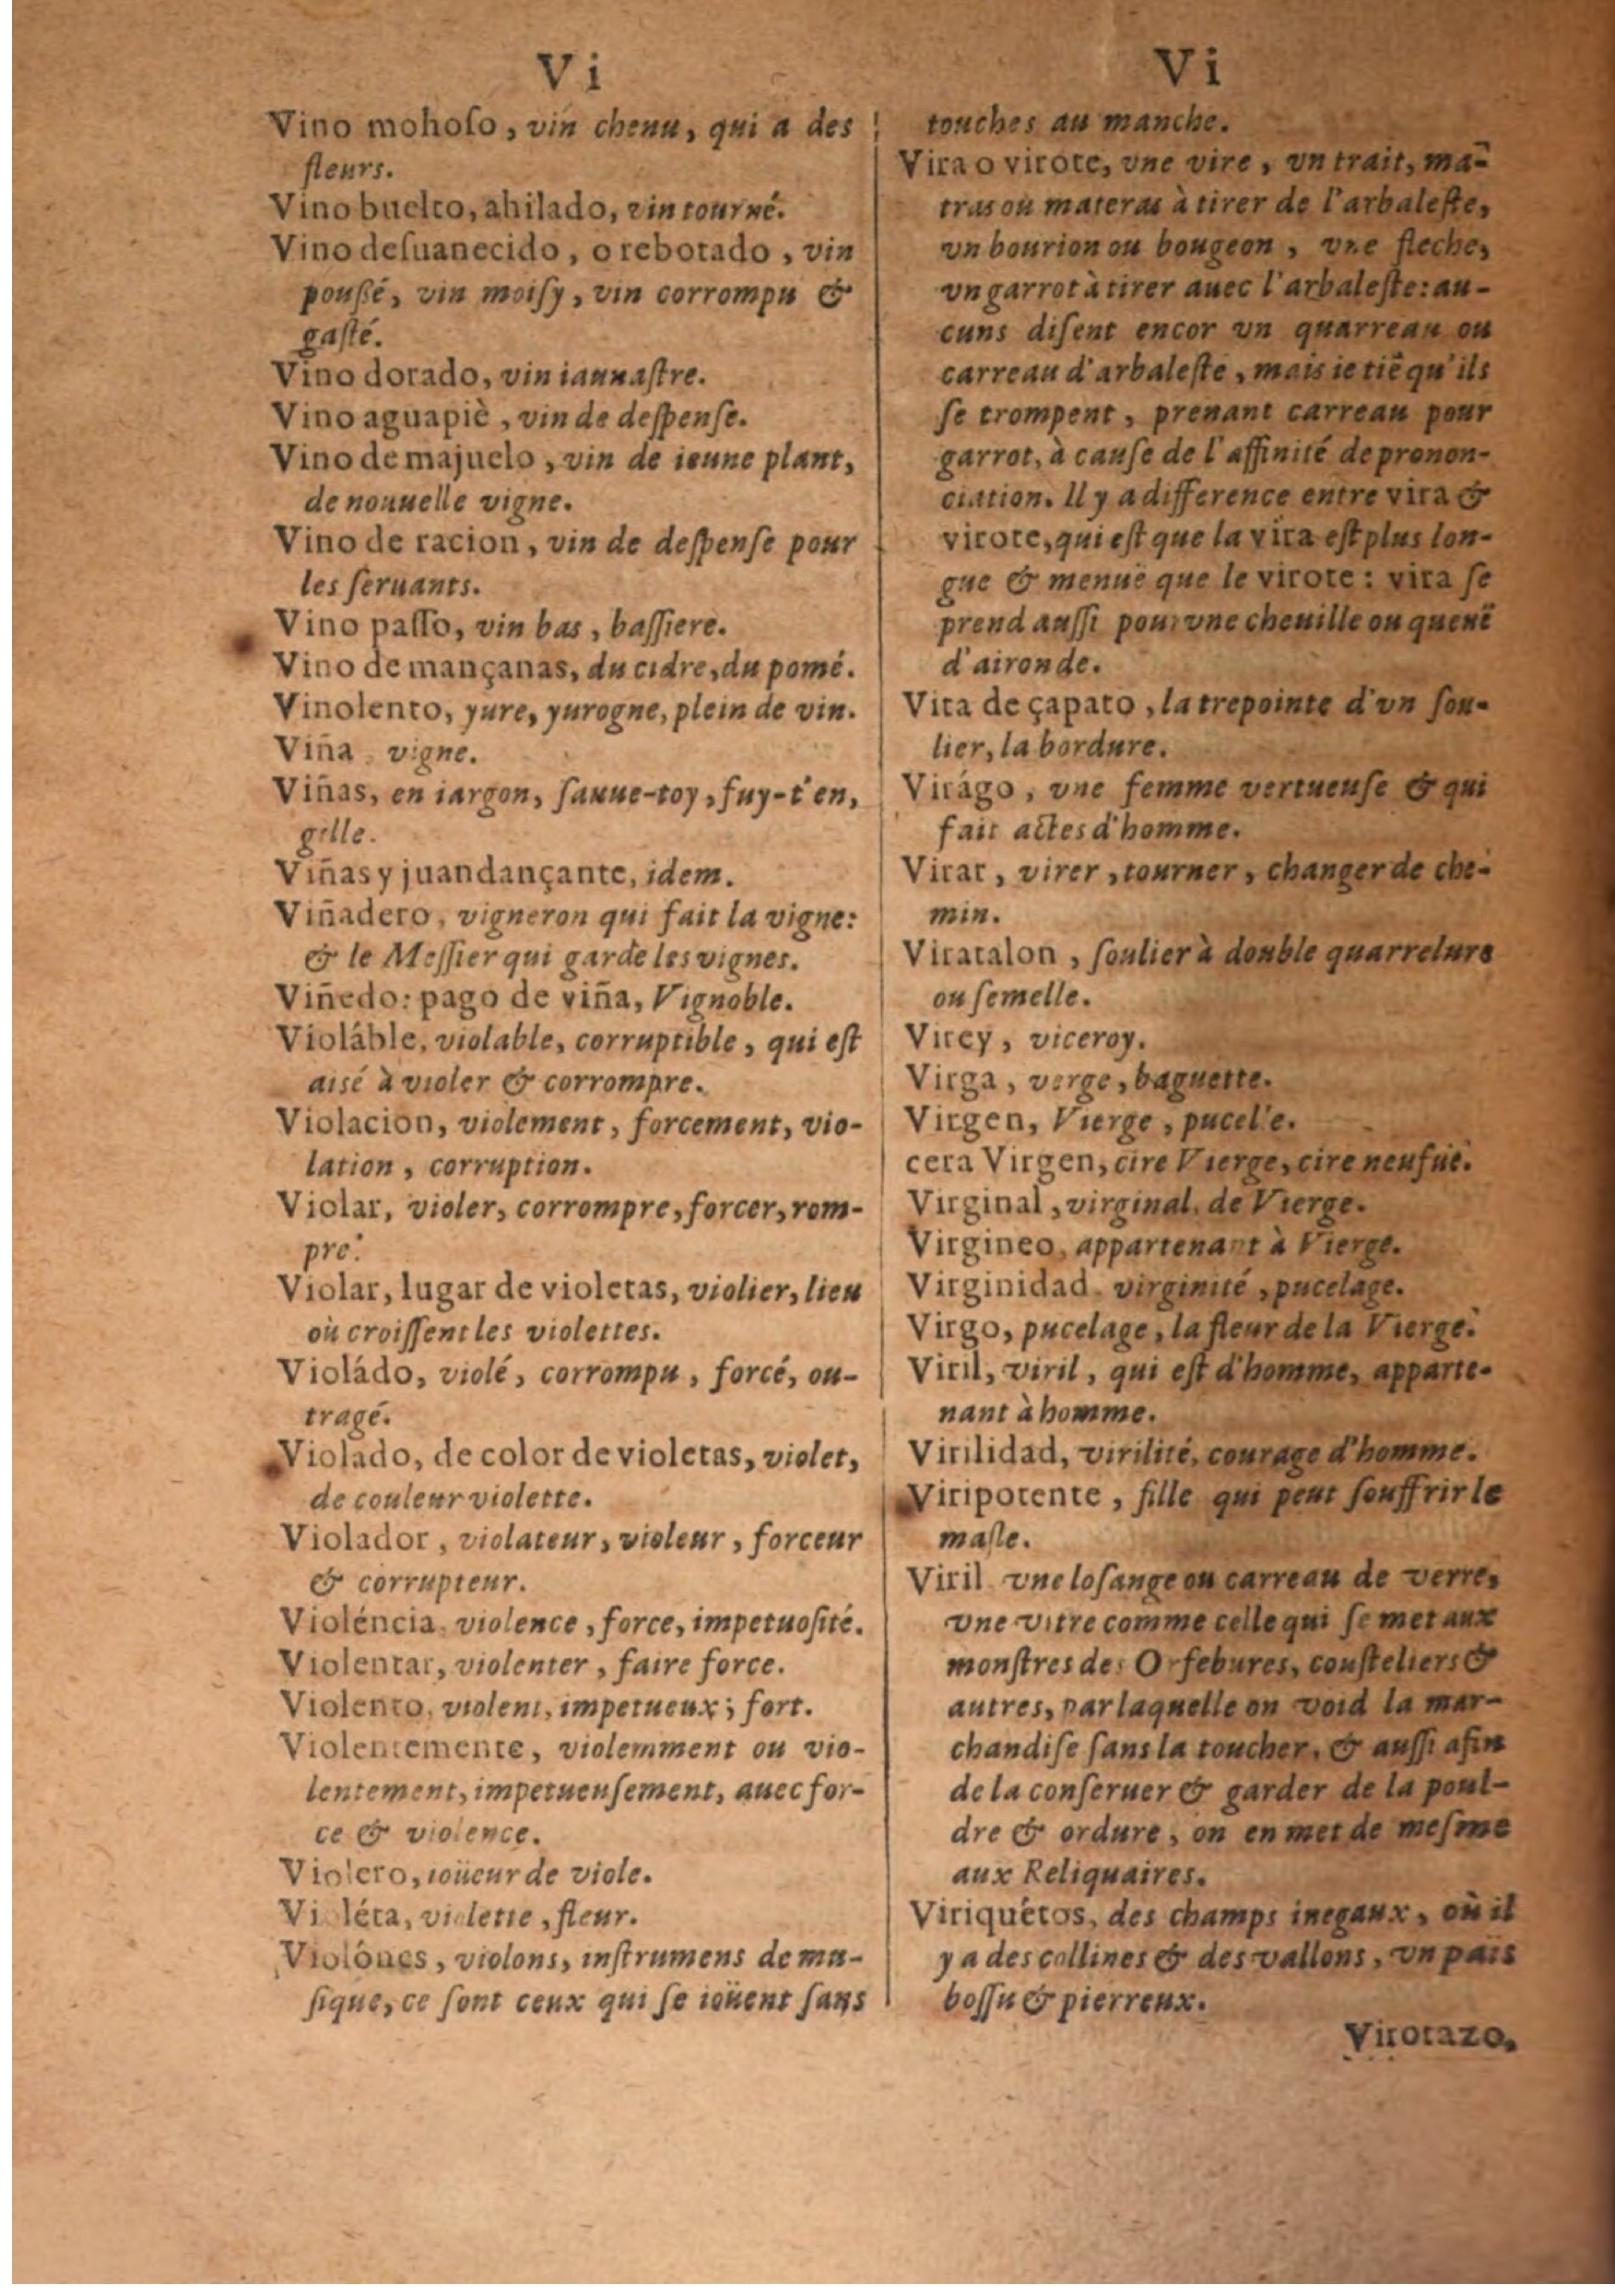 Vi
Vino mohoſo, vin chenu, qui a des
fleurs.
Vino buelto, ahilado, vin tourné.
Vino deſuanecido, o rebotado, vin
poußé, vin moiſy, vin corrompu &
gaſté.
Vino dorado, vin iaunaſtre.
Vino aguapiè, vin de deſpenſe.
Vino de majuelo, vin de ieune plant,
de nouuelle vigne.
Vino de racion, vin de deſpenſe pour
les ſeruants.
Vino paſſo, vin bas, baſſiere.
Vino de mançanas, du cidre, du pomé.
Vinolento, yure, yurogne, plein de vin.
Viña, vigne.
Viñas, en iargon, ſauue-toy, fuy-t'en,
gille.
Viñas y juandançante, idem.
Viñadero, vigneron qui fait la vigne:
& le Meſſier qui garde les vignes.
Viñedo: pago de viña, Vignoble.
Violáble, violable, corruptible, qui eſt
aisé à violer & corrompre.
Violacion, violement, forcement, vio-
lation, corruption.
Violar, violer, corrompre, forcer, rom-
pre.
Violar, lugar de violetas, violier, lieu
où croiſſent les violettes.
Violádo, violé, corrompu, forcé, ou-
tragé.
Violado, de color de violetas, violet,
de couleur violette.
Violador, violateur, violeur, forceur
& corrupteur.
Violéncia, violence, force, impetuoſité.
Violentar, violenter, faire force.
Violento, violent, impetueux; fort.
Violentemente, violemment ou vio-
lentement, impetueuſement, auec for-
ce & violence.
Violero, ioüeur de viole.
Violéta, violette, fleur.
Violónes, violons, inſtrumens de mu-
ſique, ce ſont ceux qui ſe ioüent ſans
Vi
touches au manche.
Vira o virote, vne vire, vn trait, ma-
tras ou materas à tirer de l'arbaleſte,
vn bourion ou bougeon, vne fleche,
vn garrot à tirer auec l'arbaleſte: au-
cuns diſent encor vn quarreau ou
carreau d'arbaleſte, mais ie tiẽ qu'ils
ſe trompent, prenant carreau pour
garrot, à cauſe de l'affinité de pronon-
ciation. Il y a difference entre vira &
virote, qui eſt que la vira eſt plus lon-
gue & menuë que le virote: vira ſe
prend auſſi pour vne cheuille ou queuë
d'aironde.
Vira de çapato, la trepointe d'vn ſou-
lier, la bordure.
Virágo, vne femme vertueuſe & qui
fait actes d'homme.
Virar, virer, tourner, changer de che-
min.
Viratalon, ſoulier à double quarrelure
ou ſemelle.
Virey, viceroy.
Virga, verge, baguette.
Virgen, Vierge, pucelle.
cera Virgen, cire Vierge, cire neufuë.
Virginal, virginal, de Vierge.
Virgineo, appartenant à Vierge.
Virginidad, virginité, pucelage.
Virgo, pucelage, la fleur de la Vierge.
Viril, viril, qui eſt d'homme, apparte-
nant à homme.
Virilidad, virilité, courage d'homme.
Viripotente, fille qui peut ſouffrir le
maſle.
Viril, vne loſange ou carreau de verre,
vne vitre comme celle qui ſe met aux
monſtres des Orfebures, couſteliers &
autres, par laquelle on void la mar-
chandiſe ſans la toucher, & auſſi afin
de la conſeruer & garder de la poul-
dre & ordure, on en met de meſme
aux Reliquaires.
Viriquétos, des champs inegaux, où il
y a des collines & des vallons, vn païs
boſſu & pierreux.
Virotazo,